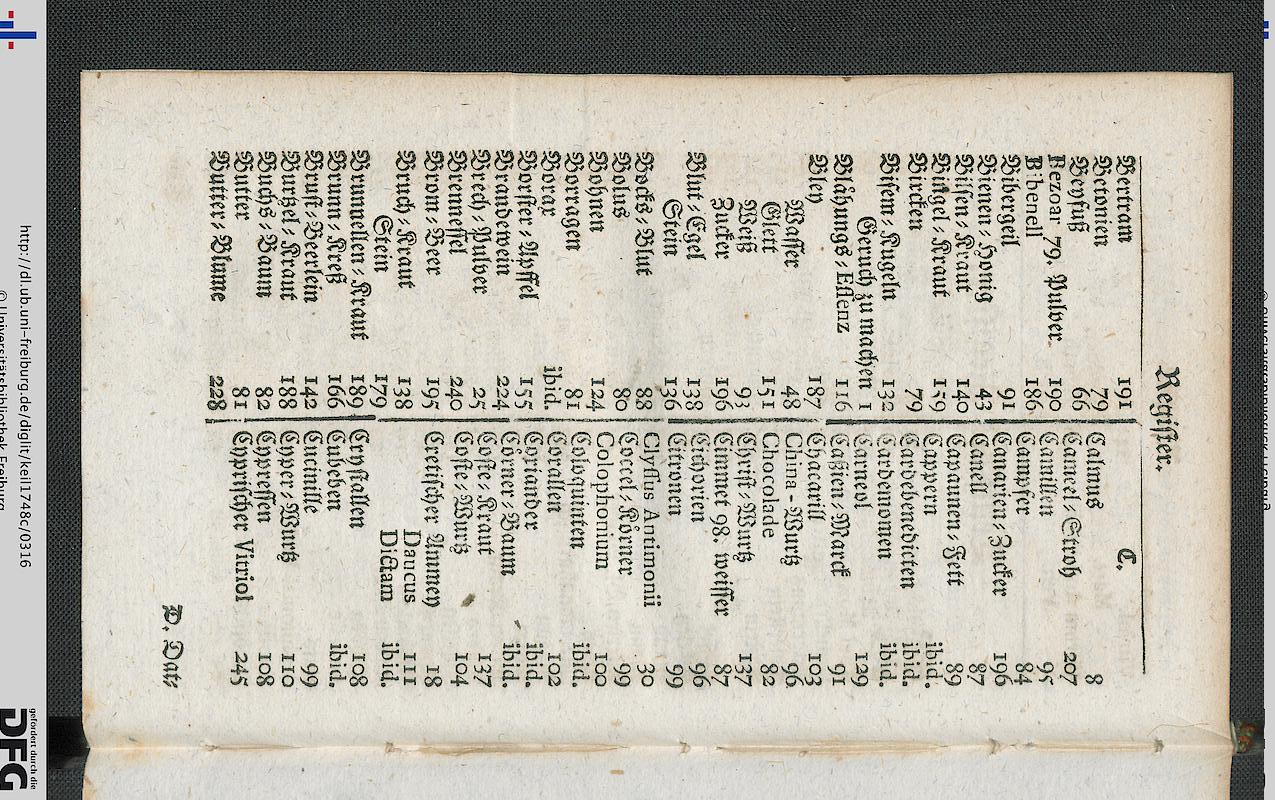 Register.
Bertram 191
Betonien 79
Beyfuß 66
Bezoar 79. Pulver. 190
Bibenell 186
Bibergeil 91
Bienen-Honig 43
Bilsen-Kraut 140
Bingel-Kraut 159
Bircken 79
Bisem-Kugeln 132
Geruch zu machen 1
Blähungs-Essenz 116
Bley 187
Wasser 48
Glett 151
Weiß 93
Zucker 196
Blut-Egel 138
Stein 136
Bocks-Blut 88
Bolus 80
Bohnen 124
Borragen 81
Borax ibid.
Borster-Apffel 155
Brandewein 224
Brech-Pulver 25
Brennessel 240
Brom-Beer 195
Bruch-Kraut 138
Stein 179
Brunnellen-Kraut 189
Brunn-Kreß 166
Brust-Beerlein 142
Burtzel-Kraut 188
Buchs-Baum 82
Butter 81
Butter-Blume 228
C.
Calmus 8
Cameel-Stroh 207
Camillen 95
Campfer 84
Canarien-Zucker 196
Canell 87
Capaunen-Fett 89
Cappern ibid.
Cardebenedicten ibid.
Cardemomen ibid.
Carneol 129
Caßien-Marck 91
Chacarill 103
China-Wurtz 96
Chocolade 82
Christ-Wurtz 137
Cimmet 98. weisser 87
Cichorien 96
Citronen 99
Clyssus Antimonii 30
Coccel-Körner 99
Colophonium 100
Coloquinten ibid.
Corallen 102
Coriander ibid.
Cörner-Baum ibid.
Coste-Kraut 137
Coste-Wurtz 104
Cretischer Ammey 18
Daucus 111
Dictam ibid.
Crystallen 108
Cubeben ibid.
Cucinille 99
Cyper-Wurtz 110
Cypressen 108
Cyprischer Vitriol 245
D. Dat-
http://dl.ub.uni-freiburg.de/diglit/keil1748c/0316
© Universitätsbibliothek Freiburg
gefördert durch die
DFG